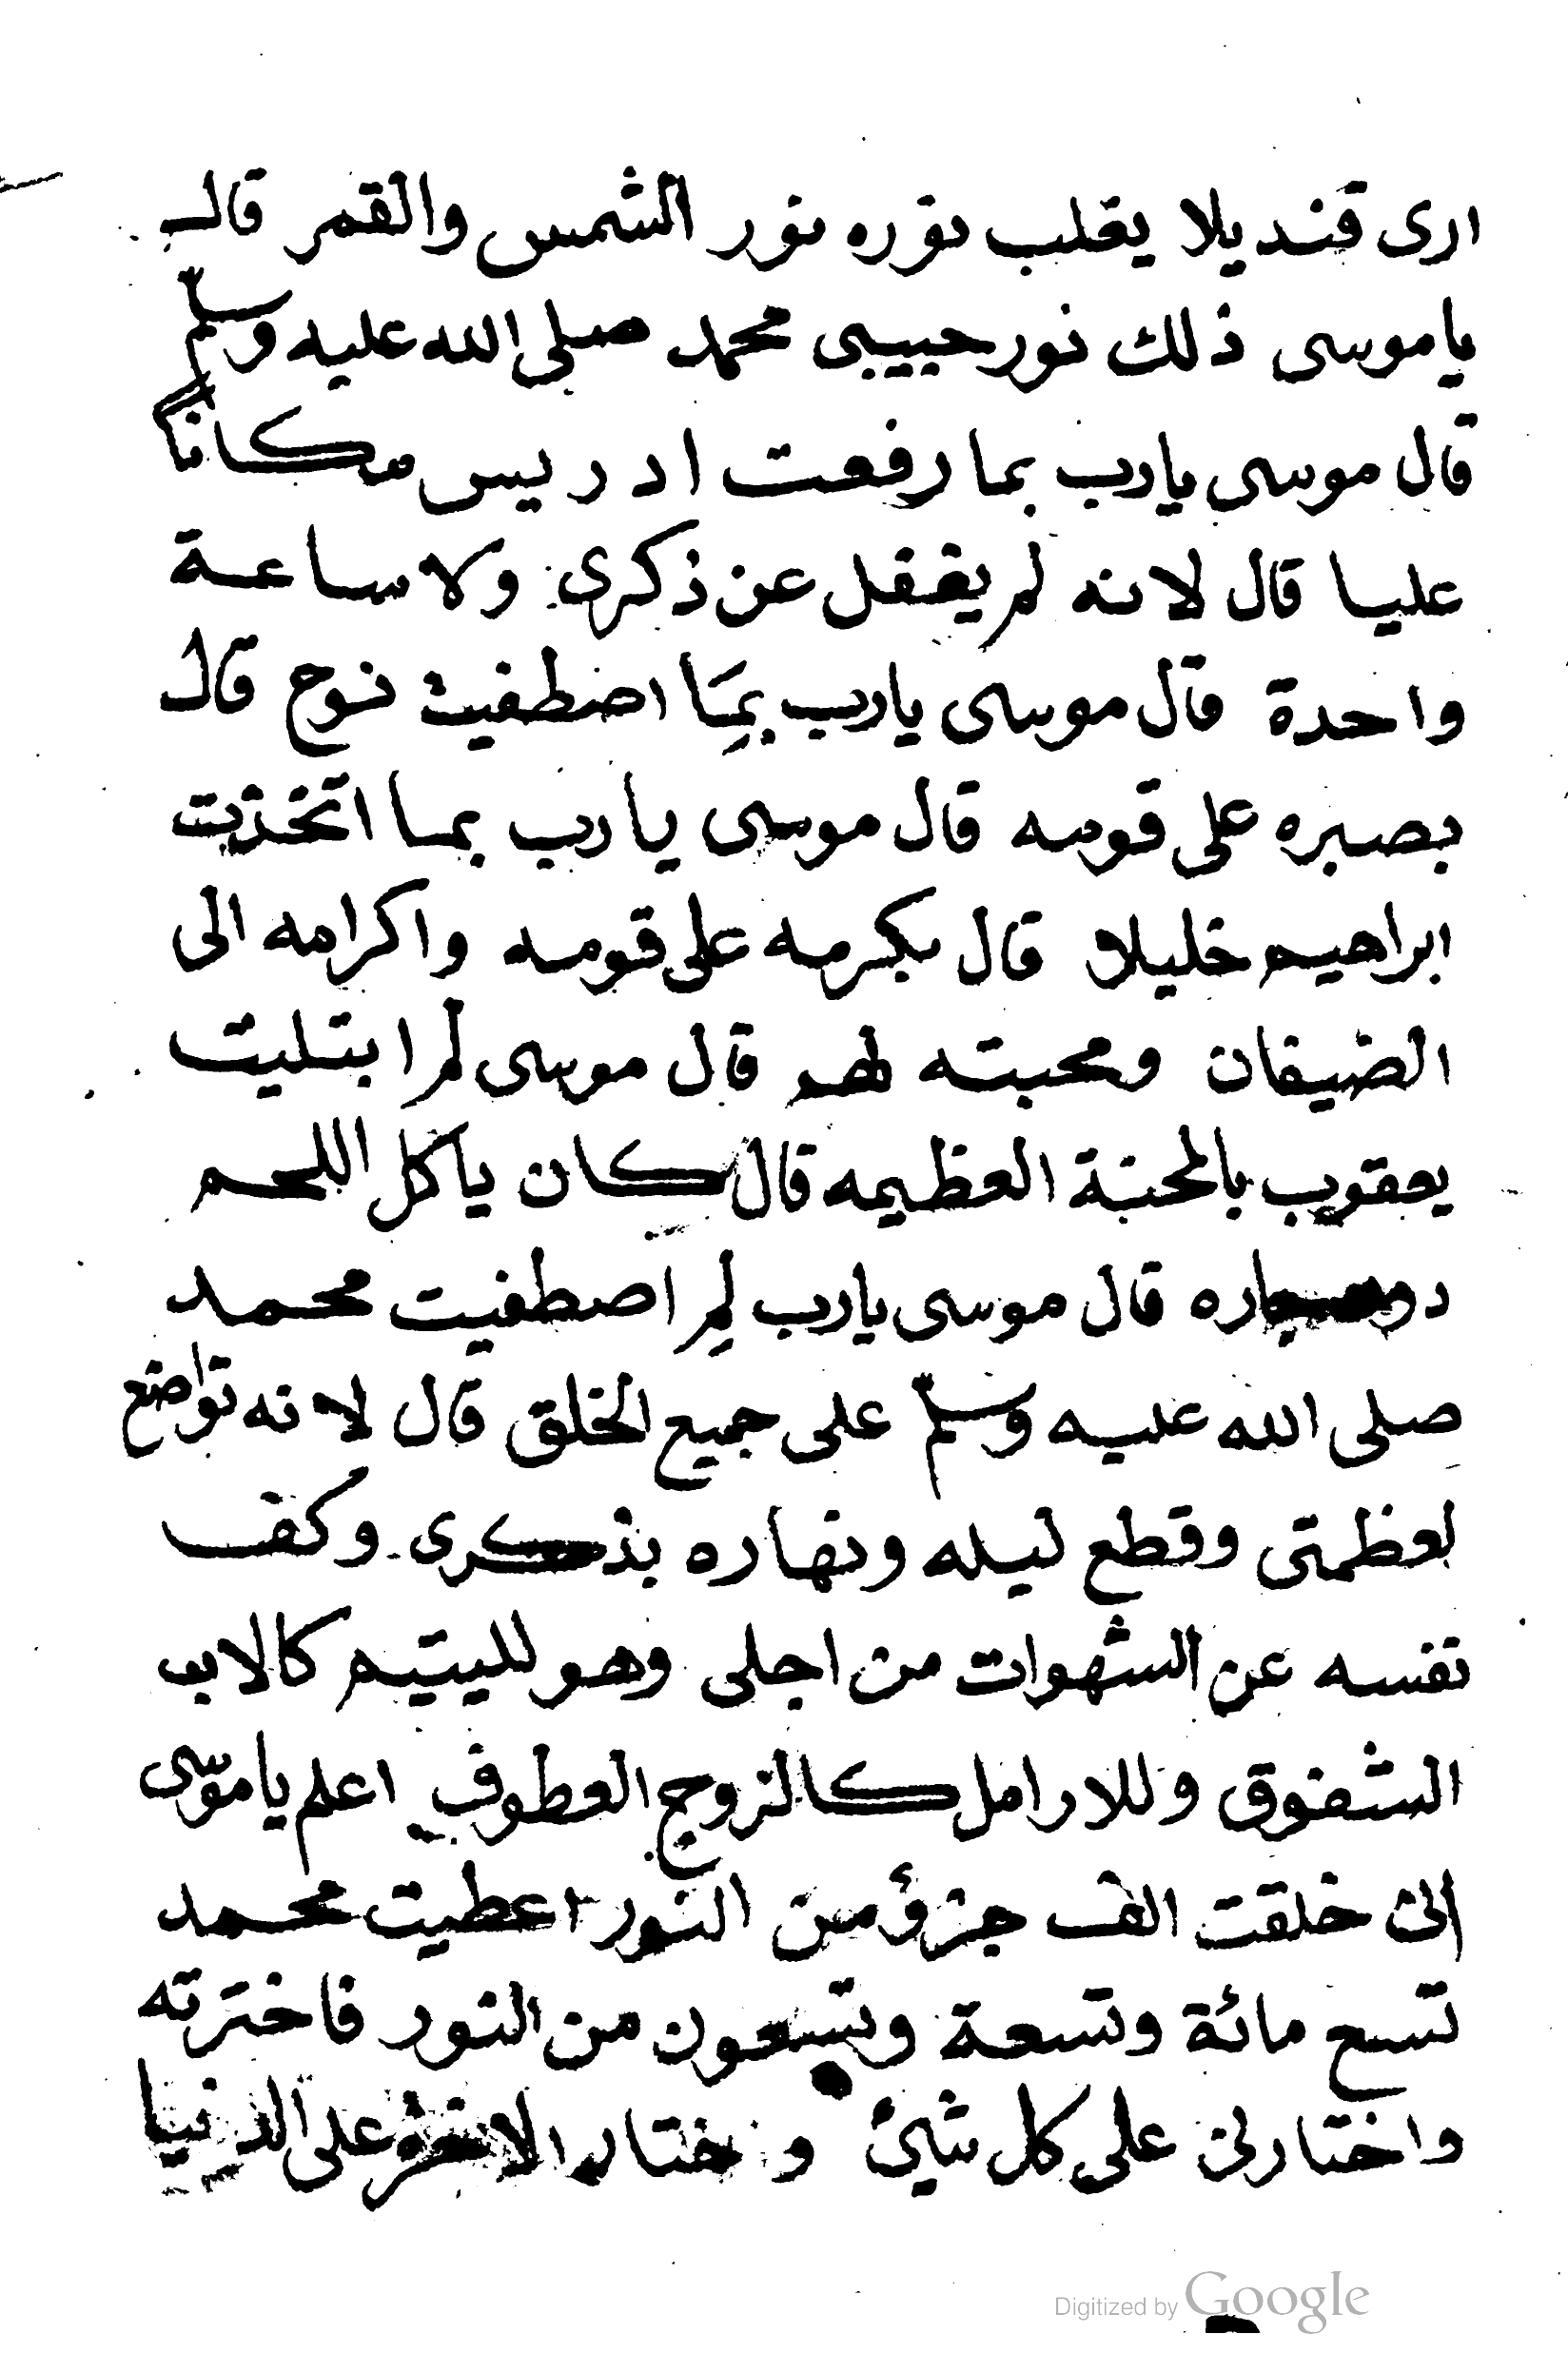 ارى قنديلا يغلب نوره نور الشمس والقمر قال
ياموسى ذلك نور حبيبى محمد صلى الله عليه وسلم
قال موسى يارب بما رفعت ادريس مكاناً
عليا قال لانه لم يغفل عن ذكرى ولا ساعة
واحدة قال موسى يارب بِمَا اصطفيت نوح قال
بصبره على قومه قال موسى يارب بما اتخذت
ابراهيم خليلا قال بكرمه على قومه واكرامه الى
الضيفان ومحبته لهم قال موسى لم ابتليت
يعقوب بالمحنة العظيمه قال كان ياكل اللحم
قال موسى يارب لِم اصطفيت محمد
صلى الله عليه وسلم على جميع الخلق قال لانه تواضع
لعظمتى وقطع ليله ونهاره بذكرى وكف
نفسه عن الشهوات من اجلى وهو لليتيم كالاب
الشفوق وللارامل كالزوج العطوف اعلم ياموسى
أنى خلقت الف جزؤ من النور اعطيت محمد
تسع مائة وتسعة وتسعون من النور فاخترته
واختارنى على كل شيئ واختار الاخرة على الدنيا
Digitized by Google